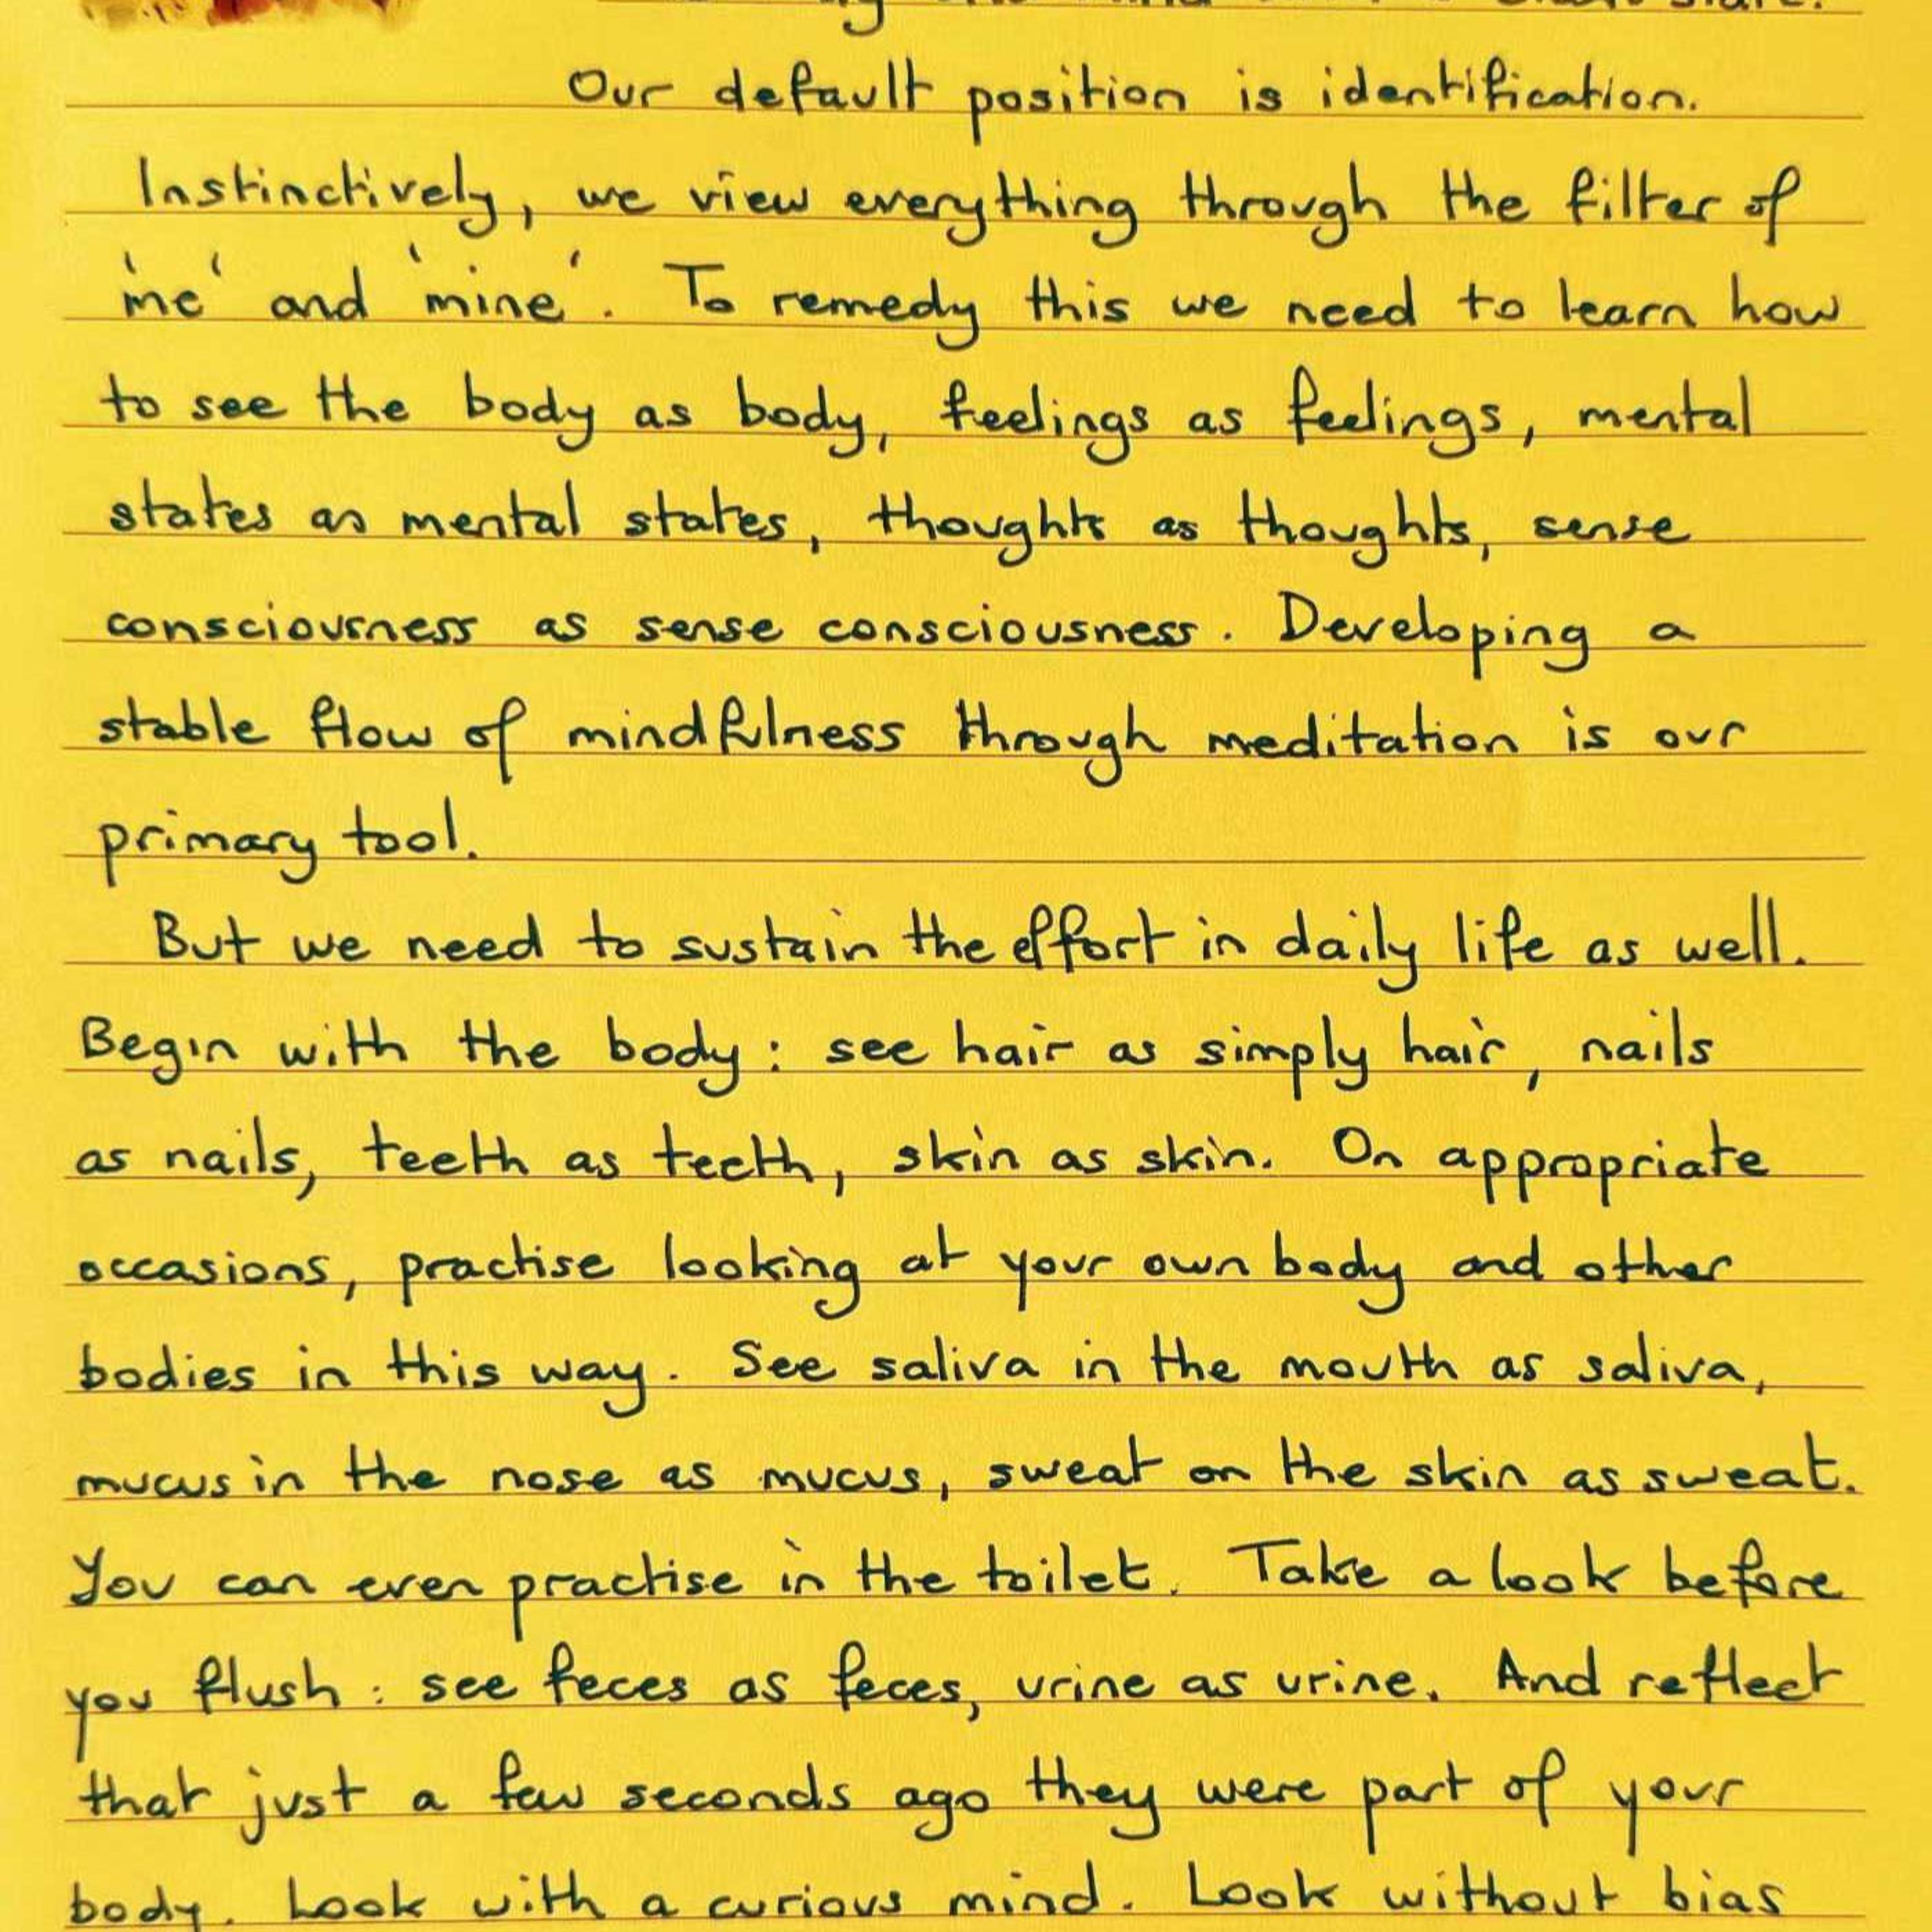 Our default position is identification.
Instinctively, we view everything through the filter of
'me' and 'mine'. To remedy this we need to learn how
to see the body as body, feelings as feelings, mental
states as mental states, thoughts as thoughts, sense
consciousness as sense consciousness. Developing a
stable flow of mindfulness through meditation is our
primary tool.
But we need to sustain the effort in daily life as well.
Begin with the body: see hair as simply hair, nails
as nails, teeth as teeth, skin as skin. On appropriate
occasions, practise looking at your own body and other
bodies in this way. See saliva in the mouth as saliva,
mucus in the nose as mucus, sweat on the skin as sweat.
You can even practise in the toilet. Take a look before
you flush: see feces as feces, urine as urine. And reflect
that just a few seconds ago they were part of your
body. Look with a curious mind. Look without bias